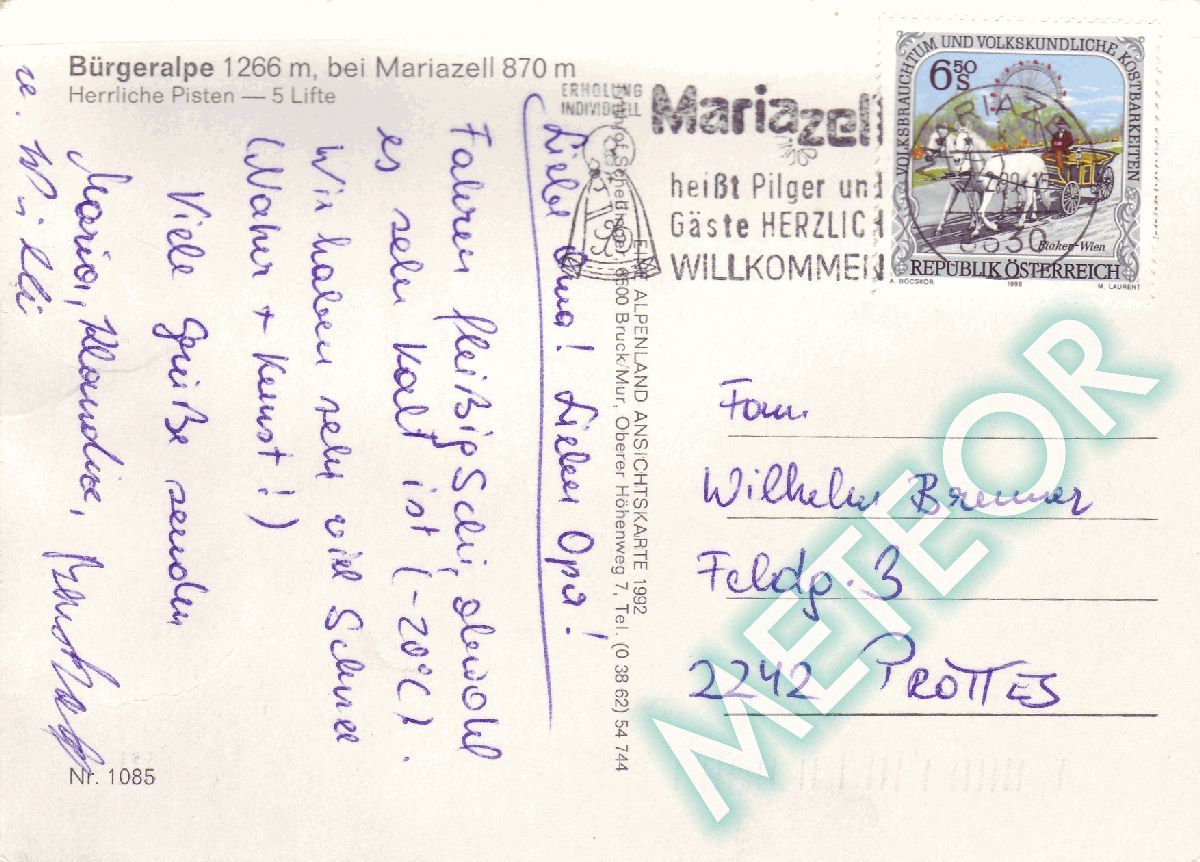 Bürgeralpe 1266 m, bei Mariazell 870 m
Herrliche Pisten — 5 Lifte
Liebe Oma! Lieber Opa!
Fahren fleißig Schi, obwohl
es sehr kalt ist (-20°C).
Wir haben sehr viel Schnee
(Natur + Kunst!)
Viele Grüße senden
Maria, Klaudia,
u. Willi
Nr. 1085
EINE ALPENLAND ANSICHTSKARTE 1992
8600 Bruck/Mur, Oberer Höhenweg 7, Tel. (0 38 62) 54 744
ERHOLUNG
INDIVIDUELL
Mariazell
heißt Pilger und
Gäste HERZLICH
WILLKOMMEN
VOLKSBRAUCHTUM UND VOLKSKUNDLICHE KOSTBARKEITEN
650
S
8630
Fiaker-Wien
REPUBLIK ÖSTERREICH
A. BÖCSKÖR
M. LAURENT
Fam.
Wilhelm Brenner
Feldg. 3
2242 PROTTES
METEOR